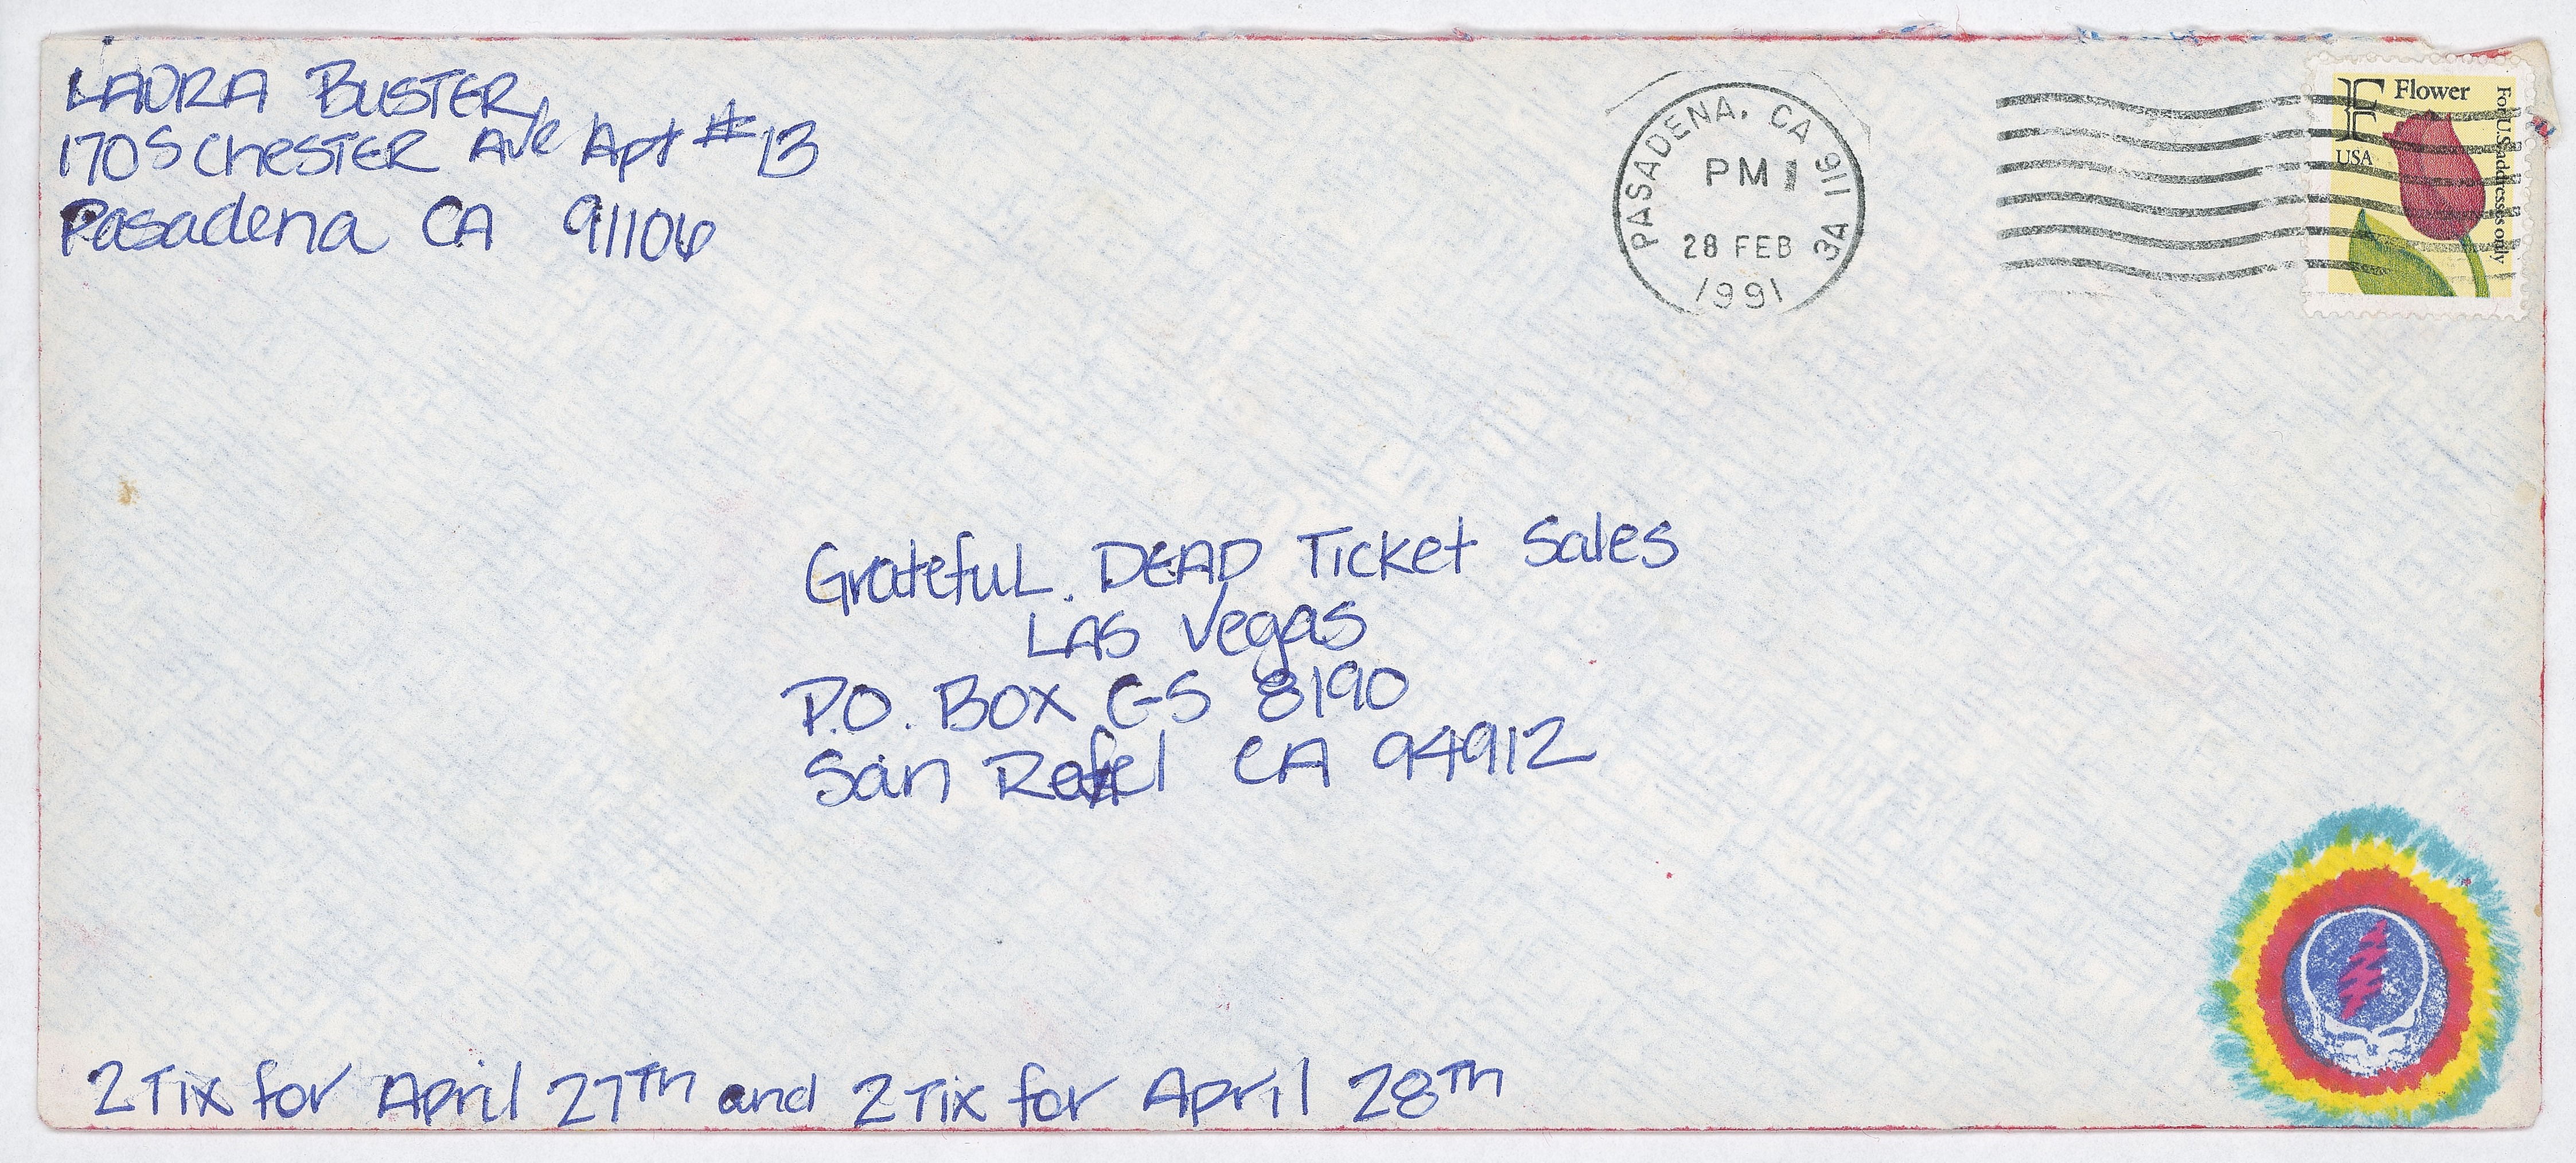 LAURA BUSTER
170 S CheSTER Ave Apt #13
Pasadena CA 91106
PASADENA, CA 911
PM
28 FEB
1991
3A
F Flower
USA
For U.S. addresses only
GratefuL DEAD Ticket Sales
LAS Vegas
P.O. BOX CS 8190
San Rafel CA 94912
2 Tix for April 27Th and 2 Tix for April 28Th